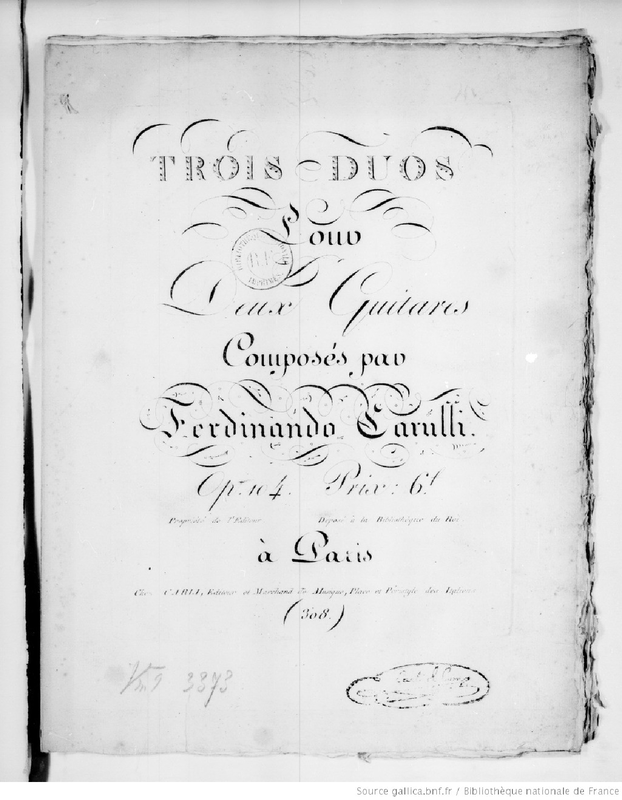 TROIS DUOS
Pour
Deux Guitares
Composés par
Ferdinando Carulli.
Op. 104. Prix: 6.f
Propriété de l'Editeur Déposé à la Bibliothèque du Roi
à Paris
Chez CARLI, Editeur et Marchand de Musique, Place et Péristyle des Italiens
(308.)
Vm9 3373
Source gallica.bnf.fr / Bibliothèque nationale de France